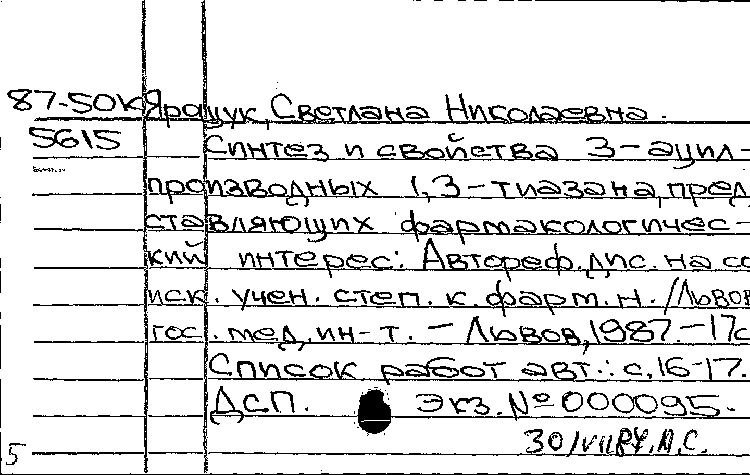 87-50К Ярощук, Светлана Николаевна.
5615 Синтез и свойства 3-ацил-
производных 1,3-тиазана, пред
ставляющих фармакологичес-
кий интерес: Автореф. дис. на со
иск. учен. степ. к. фарм. н. /Львов
гос. мед. ин-т. - Львов, 1987. - 17с
Список работ авт.: с. 16-17.
ДСП. Экз. № 000095.
5